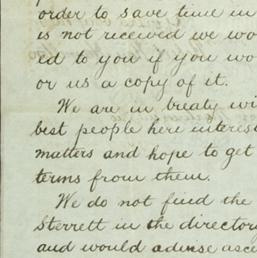 order to save time in
is not received we wo
ed to you if you wo
or us a copy of it.
We are in treaty wi
best people here interes
matters and hope to get
terms from them.
We do not find the
Sterrett in the directo
and would advise asce